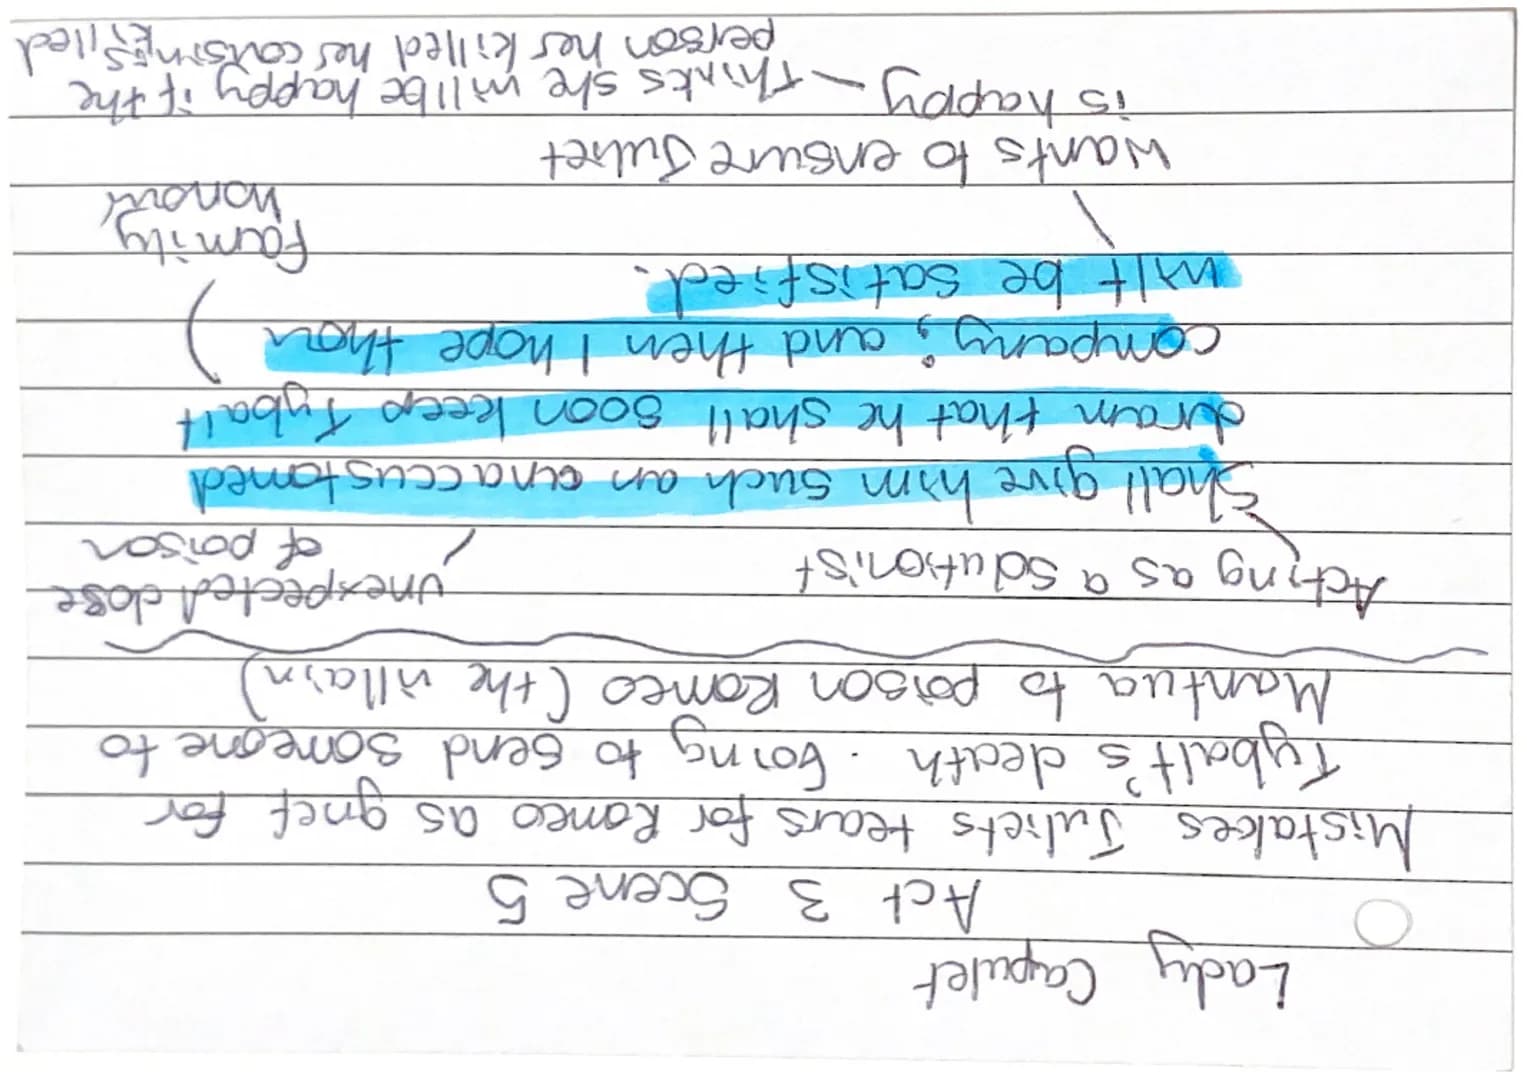 Lady Capulet
Act 3 Scene 5
Mistakes Juliets tears for Romeo as grief for
Tybalt's death. Going to send someone to
Mantua to poison Romeo (the villain)
Acting as a solutionist
unexpected dose
of poison
Shall give him such an unaccustomed
dram that he shall soon keep Tybalt
company; and then I hope thou
wilt be satisfied.
family
honour
wants to ensure Juliet
is happy - thinks she will be happy if the
person her killed her cousin is killed